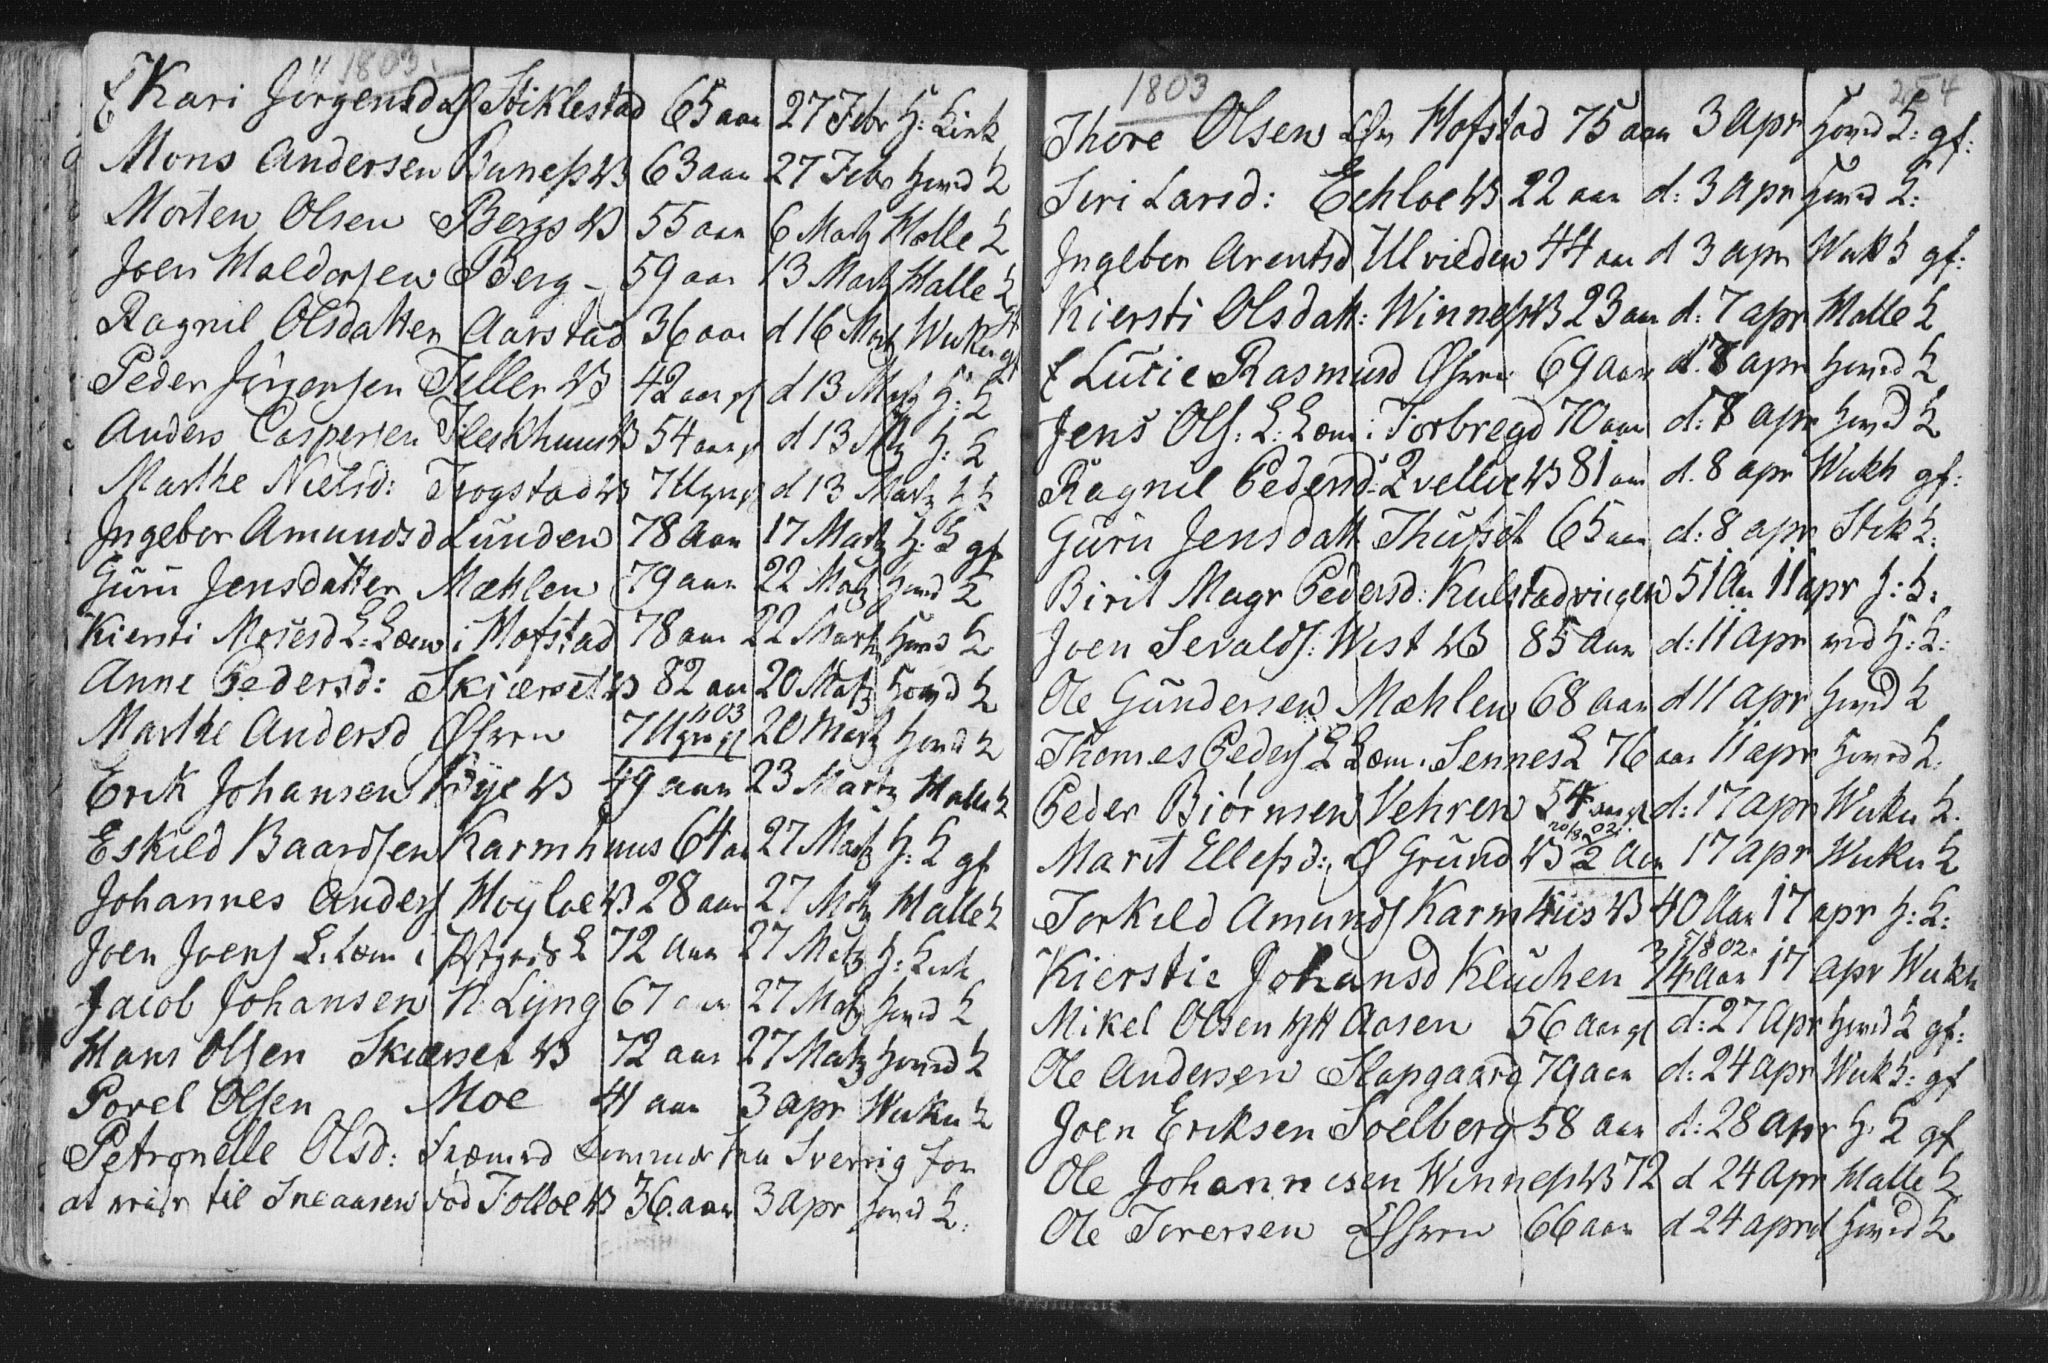 1803.
Kari Jörgensd Stiklestad 65 aar 27 Febr H: Kirk
Mons Andersen 63 aar 27 Febr Hoved K
Morten Olsen Bergs 55 aar 6 Martz Halle K
Joen Haldorsen Berg - 59 aar 13 Martz Halle K
Ragnil Olsdatter Aarstad 36 aar d 16 Mart Wuku gf
Peder Jörgensen Teller 42 aar d 13 Martz H: K
Anders Caspersen 54 aar d 13 Mtz H: K
Marthe Nielsd: Trogstad d 13 Martz H K
Ingebor Amundsd Lunden 78 aar 17 Martz H: K gf
Guru Jensdatter Mæhlen 79 aar 22 Mtz Hoved K
Kiersti Mosesd L: Læm i Hofstad 78 aar 22 Martz Hoved K
Anne Pedersd: Skiærset 82 aar 20 Martz Hoved K
Marthe Andersd 20 Martz Hoved K
Erik Johansen Bye 49 aar 23 Martz Halle K
Eskild Baardsen Karmhuus 64 aar 27 Martz H: K gf
Johannes Anders Høyloe 28 aar 27 Mtz Halle K
Joen Joens L: Læm i 72 aar 27 Mtz H: Kirk
Jacob Johansen N: Lyng 67 aar 27 Mtz Hoved K
Hans Olsen Skiærset 72 aar 27 Martz Hoved K
Porel Olsen Moe 41 aar 3 apr Wuku K
Petronelle Olsd: fra Sverrig for
at til Sneaasen fød Tolloe 36 aar 3 apr Hoved K:
1803 254
Thore Olsen Hofstad 75 aar 3 apr Hoved K: gf:
Siri Larsd: Echloe 22 aar d: 3 apr Hoved K:
Ingebor Arentsd Ulvilden 44 aar d 3 apr Wuk K gf:
Kiersti Olsdatt: Winnes 23 aar d: 7 apr Halle K
Lucie Rasmusd 69 aar d. 8 apr Hoved K
Jens Ols: L: Læm i Forbregd 70 aar d: 8 apr Hoved K
Ragnil Pedersd: Qvelloe 81 aar d. 8 apr Wuku gf:
Guru Jensdatt Thuset 65 aar d: 8 apr Stik K:
Birit Magr Pedersd: Kulstadvigen 51 Aar 11 apr H: K:
Joen Sevalds: West 85 Aar d: 11 apr ved H: K:
Ole Gundersen Mæhlen 68 aar d 11 apr Hoved K
Thomes Peders L Læm i Sennes L 76 aar 11 apr Hoved K:
Peder Biörnsen Vehren 54 d: 17 apr Wuku K.
Marit Ellefsd: Ø Grund 2 Aar 17 apr Wuku K
Torkild Amunds Karmhuus 40 Aar 17 apr H: K:
Kierstie Johansd Kluchen 17 apr Wuku
Mikel Olsen Aasen 56 aar d: 27 Apr Hoved K gf:
Ole Andersen Slapgaard 79 aar d: 24 apr Wuk K: gf
Joen Eriksen Soelberg 58 aar d: 28 apr H: K gf
Ole Johannesen Winnes 72 d 24 apr Halle K
Ole Torersen 66 aar d 24 april Hoved K